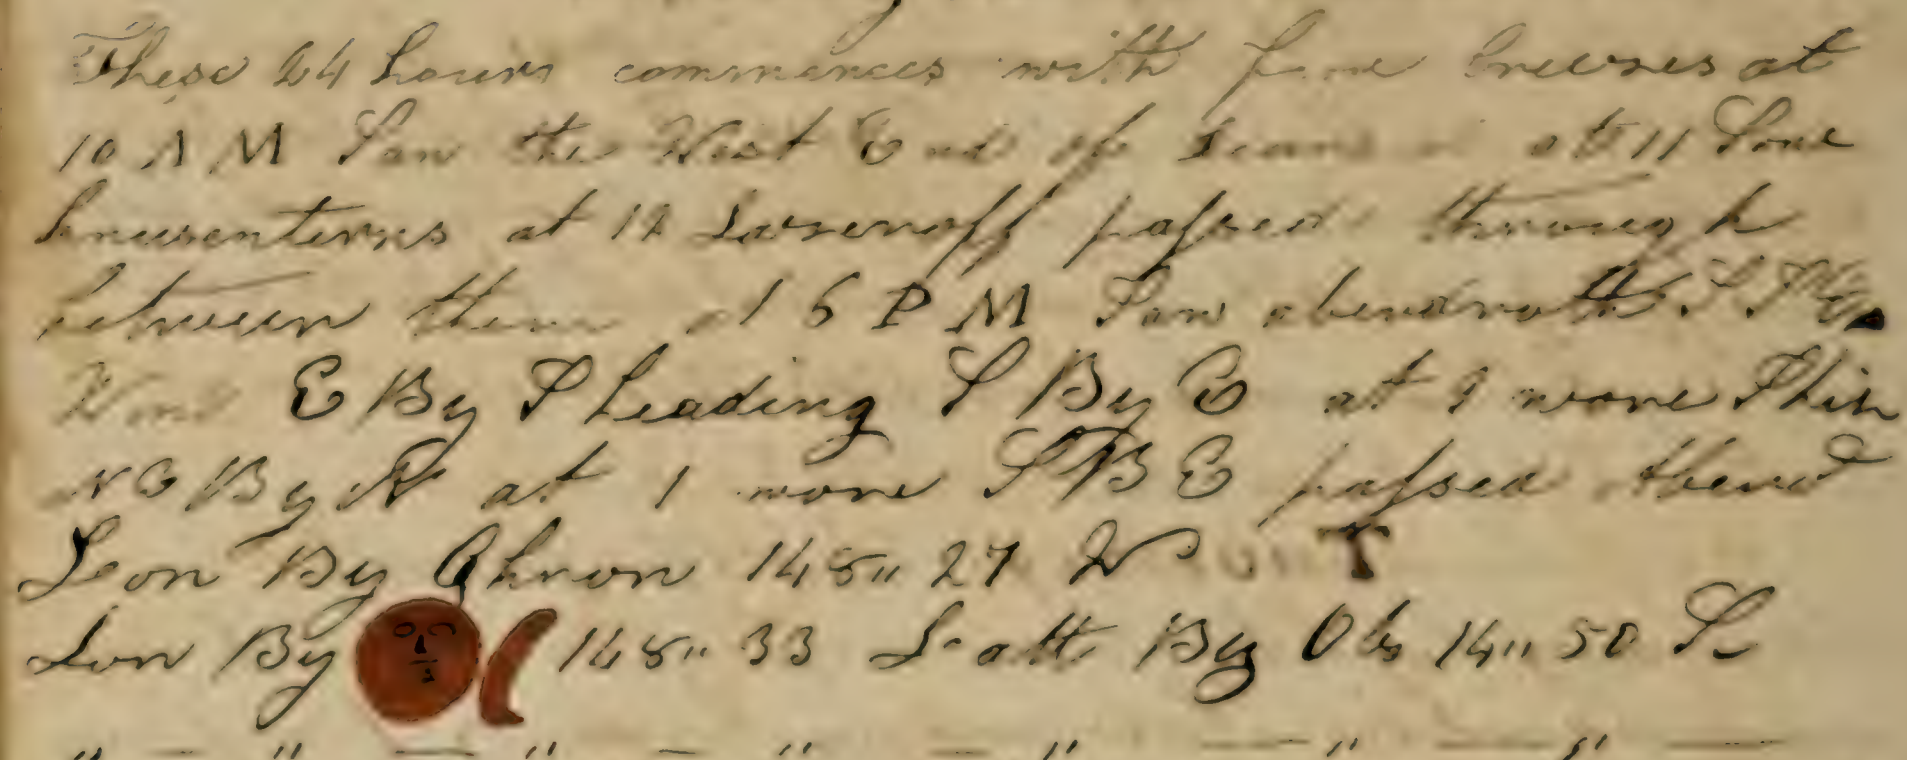 These 24 hours commences with fine breeses at
10 A M Saw the West End of at 11 Some
at 12 passed through
between them at 6 P M Saw abendroth S S W
Wind E By S heading S By E at 9 wore Ship
N E By N at 1 wore S B E passed
Lon By Chron 145" 27 W
Lon By 145" 33 Latt By Obs 14" 50 S